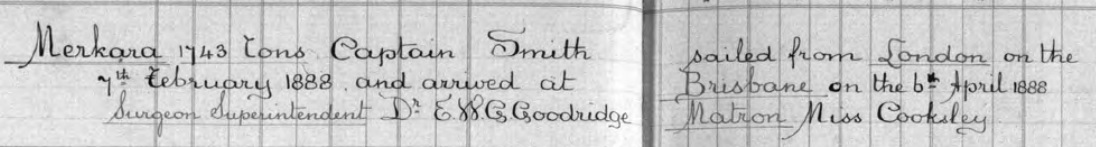 Merkara 1743 Tons Captain Smith sailed from London on the
7th February 1888 and arrived at Brisbane on the 6th April 1888
Surgeon Superintendent Dr E.W.G. Goodridge Matron Miss Cooksley